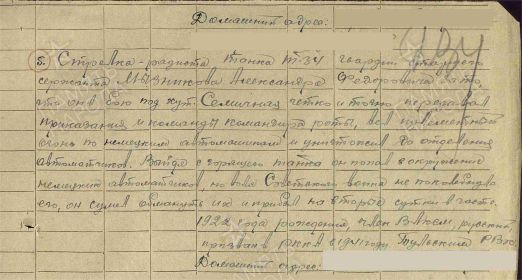 Домашний адрес:
5. Стрелка-радиста танка Т-34 гвардии старшего
сержанта Мызникова Александра Федоровича за то,
что он в бою под хут. Семичная четко и точно передавал
приказания и команды командира роты, вел пулеметный
огонь по немецким автоматчикам и уничтожил до отделения
автоматчиков. Выйдя с горящего танка он попал в окружение
немецких автоматчиков, но воля Советского воина не поколебала
его, он сумел обмануть их и прибыл на вторые сутки в часть.
1922 года рождения, член ВЛКСМ, русский,
призван в РККА в 1941 году Тульским РВК.
Домашний адрес: